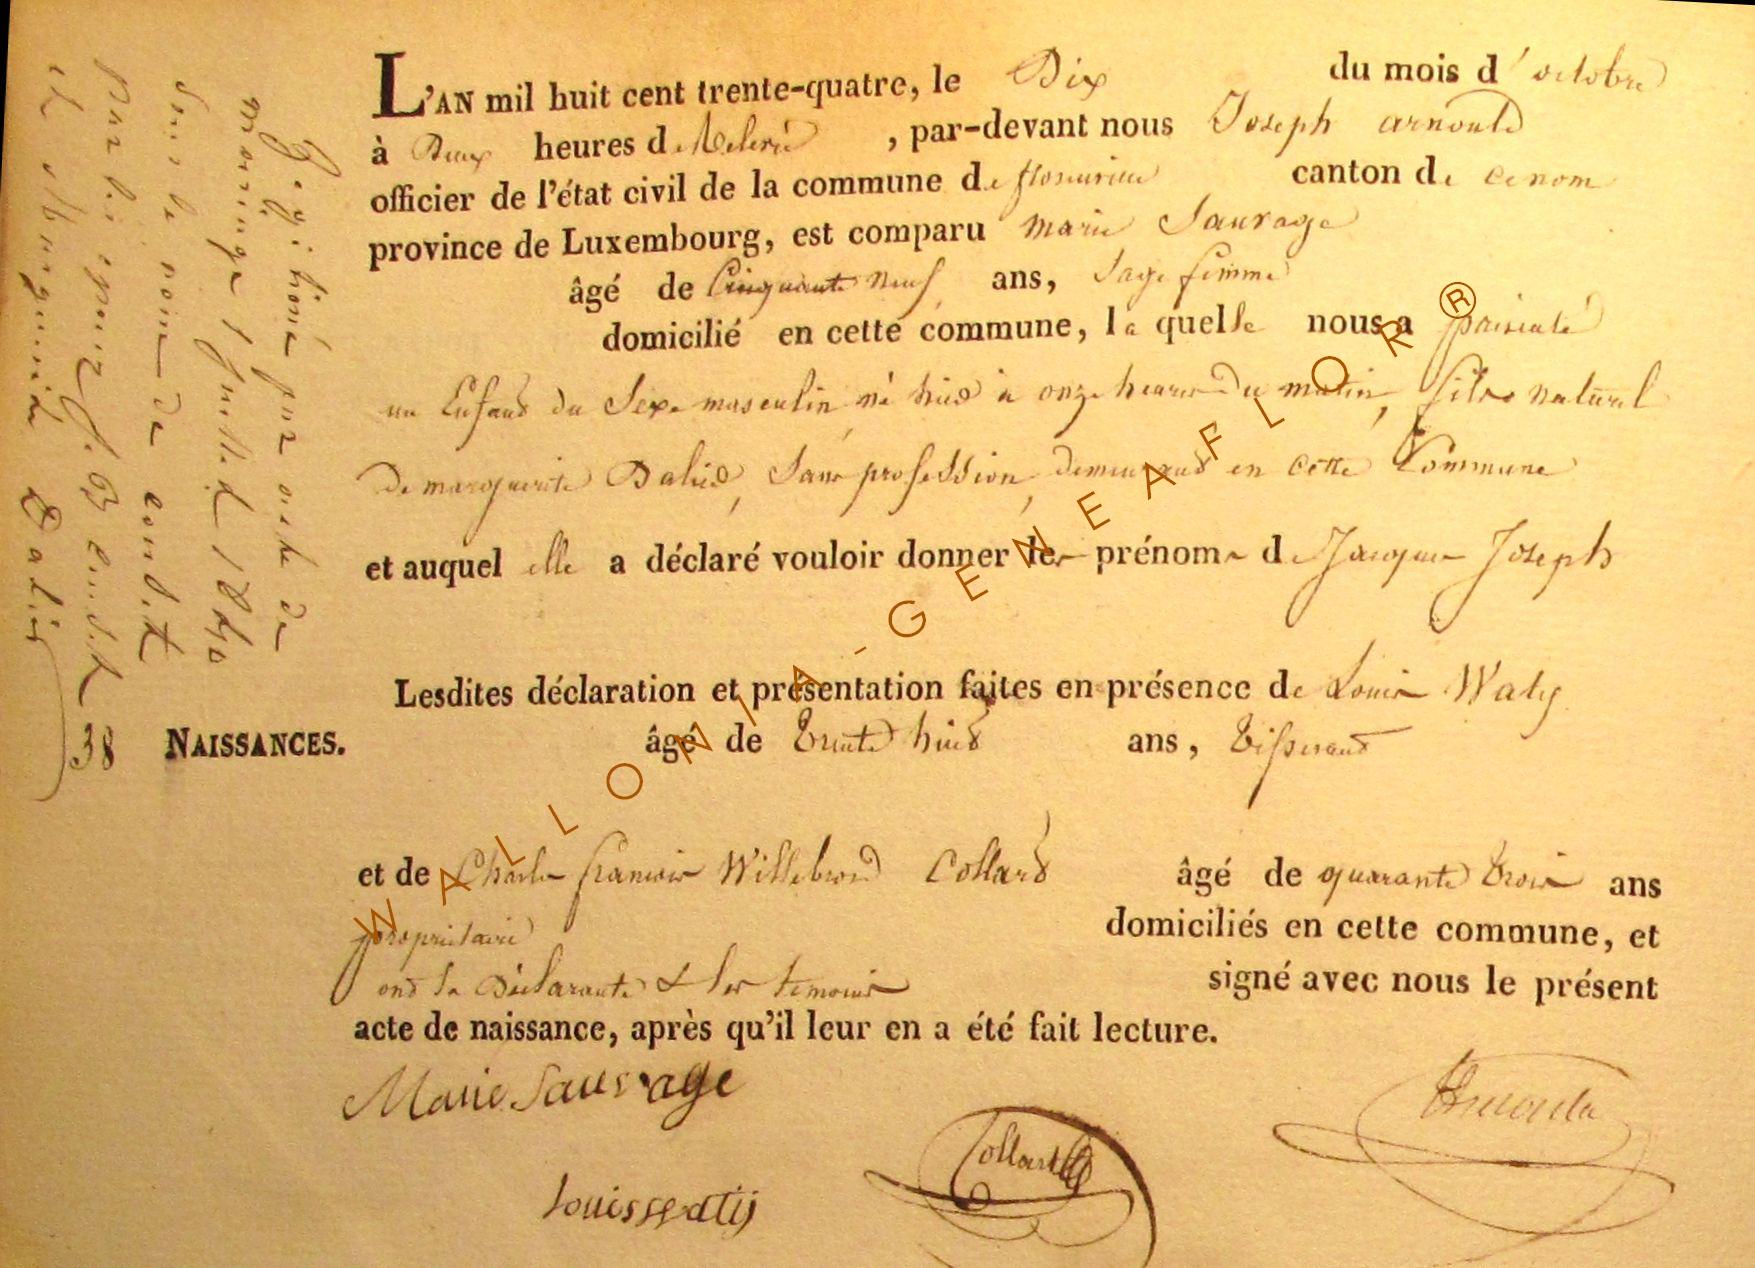 L'AN mil huit cent trente-quatre, le Dix du mois d'octobre
à Deux heures de Relevée, par-devant nous Joseph arnould
officier de l'état civil de la commune de florenville canton de
province de Luxembourg, est comparu marie Sauvage
âgé de Cinquante neuf ans, Sage femme
domicilié en cette commune, la quelle nous a présenté
un Enfant du Sexe masculin né hier à onze heures du matin, fils naturel
de marguerite Dalid, Sans profession, demeurant en cette Commune
et auquel elle a déclaré vouloir donner les prénoms de Jacques Joseph
Lesdites déclaration et présentation faites en présence de Louis Waty
âgé de trente huit ans, tisserand
et de Charles françois Willebrord Collard âgé de quarante trois ans
propriétaire domiciliés en cette commune, et
ont la Déclarante & les témoins signé avec nous le présent
acte de naissance, après qu'il leur en a été fait lecture.
Marie Sauvage
Collard
Louis Watij
Légitimé par acte de
mariage 1 juillet 1840
sous le nom de condit
par les époux J. B. Condit
et Marguerite Dalid
38 NAISSANCES.
WALLONIA-GENEAFLOR®